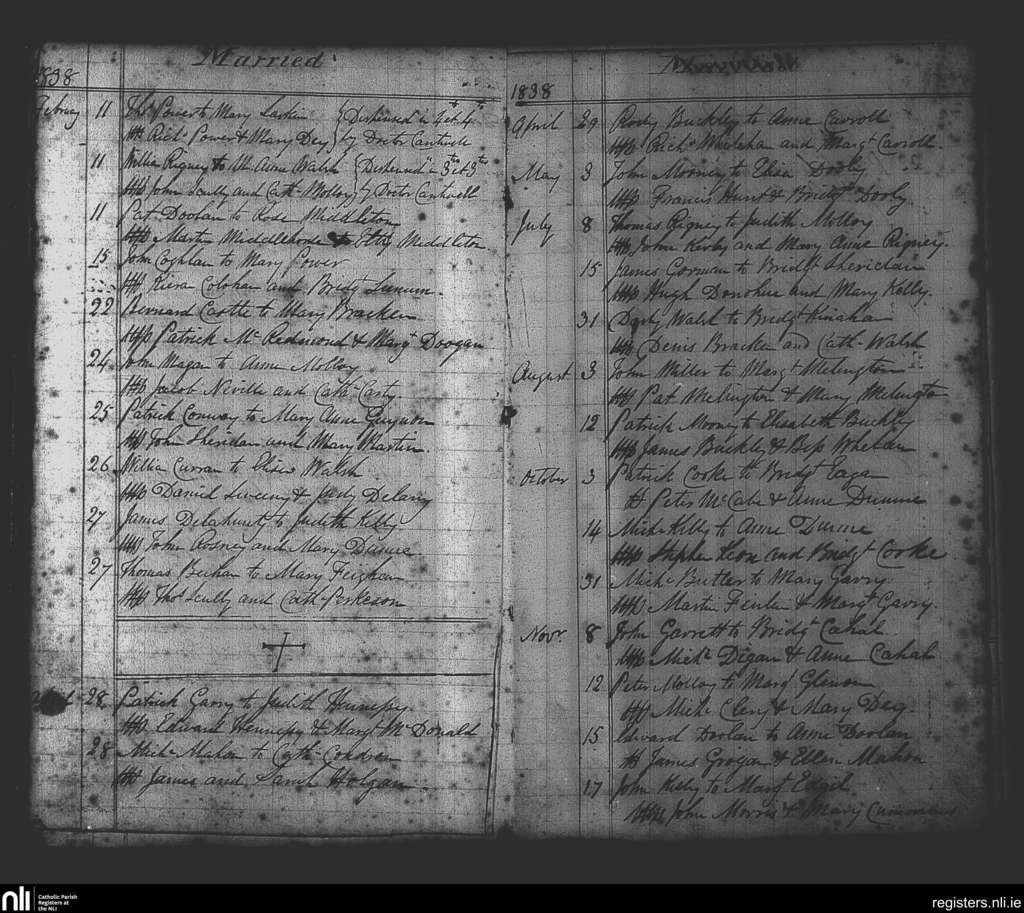 Married
1838
11 Thos Power to Mary Larkin } Dispensed in 4th 4th
Richd Power & Mary Dey } by Doctr Cantwell
11 Willm Rigney to M. Anne Walsh { Dispensed in 3d et 3th
John Scully and Cath Molloy } Doctor Cantwell
11 Pat Doolan to Rose Middleton
Martin & Etty Middleton
15 John Coghlan to Mary Power
Kiera Colohan and Bridt
22 Bernard Castle to Mary Bracken
Patrick Mc Redmond & Margt Doogan
24 John Magan to Anne Molloy
Jacob Neville and Cath Carty
25 Patrick Conway to Mary Anne
John Sheridan and Mary Martin.
26 Willm Curran to Elisa Walsh
Daniel Sweeny & Judy Delany
27 James Delahunt to Judith Kelly
John Rosney and Mary
27 Thomas Behan to Mary Feighan
Thos Scully and Cath
28 Patrick Garry to Judith Hennessy.
Edward Hennessy & Margt McDonald
28 Michl Mahon to Cath Condren
James and Sarah Holgan
1838
April 29 Rody Buckley to Anne Carroll
Richd Whelehan and Margt Carroll.
May 3 John Mooney to Elisa Dooly
Francis Hunt & Bridgt Dooly
July 8 Thomas Rigney to Judith Molloy
John Kirby and Mary Anne Rigney.
15 James Gorman to Bridgt Sheridan
Hugh Donohue and Mary Kelly.
31 Darby Walsh to Bridgt Kinahan
Denis Bracken and Cath Walsh
August 3 John Miller to Margt Melington
Pat Melington & Mary Melington
12 Patrick Mooney to Elisabeth Buckley
James Buckley & Whelan
October 3 Patrick Cooke to Bridgt Eagan
Peter McCabe & Anne Dunne
14 Michl Kelly to Anne Dunne
Stephen Leon and Bridgt Cooke
31 Michl Butler to Mary Garry
Martin & Margt Garry.
Novr 8 John Garrett to Bridgt Cahal
Michl Digan & Anne Cahal
12 Peter Molloy to Margt Gleeson
Michl Clery & Mary Dey.
15 Edward Doolan to Anne Doolan
James Grogan & Ellen Mahon
17 John Kelly to Margt
John Morris & Mary
nli Catholic Parish
Registers at
the NLI
registers.nli.ie